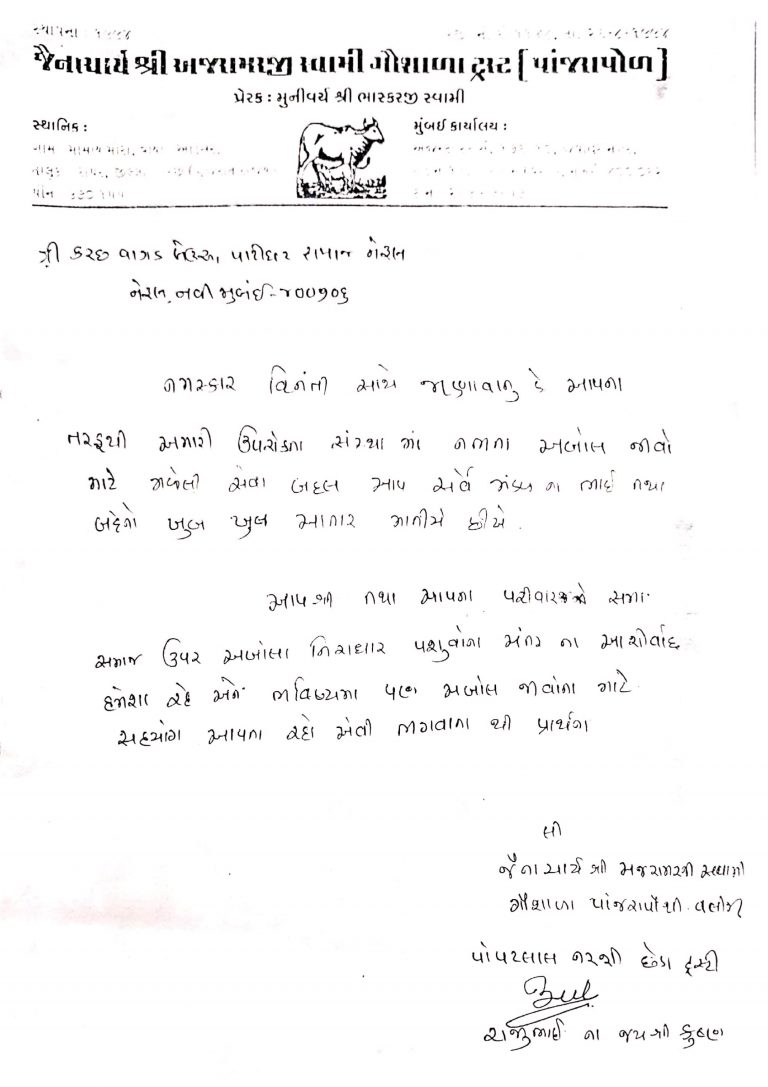 સ્થાપના : ૧૯૯૪
જૈનાચાર્ય શ્રી અજરામરજી સ્વામી ગૌશાળા ટ્રસ્ટ [ પાંજરાપોળ ]
પ્રેરક : મુનીવર્ય શ્રી ભાસ્કરજી સ્વામી
સ્થાનિક :
મુંબઈ કાર્યાલય :
શ્રી કચ્છ વાગડ લેઉઆ પાટીદાર સમાજ નેરૂલ
નેરૂલ, નવી મુંબઈ - ૪૦૦૭૦૬
નમસ્કાર વિનંતી સાથે જણાવાનુ કે આપના
તરફથી અમારી ઉપરોક્ત સંસ્થા માં અબોલ જીવો
માટે મળેલી સેવા બદલ આપ સર્વે મંડળ ના ભાઈ તથા
બહેનો ખુબ ખુબ આભાર માનીયે છીયે .
આપશ્રી તથા આપના પરીવાર
સમાજ ઉપર અબોલા નિરાધાર પશુવોના અંતર ના આશીર્વાદ
હમેશા રહે અને ભવિષ્યમા પણ અબોલ જીવોના માટે
સહયોગ આપતા રહો એવી ભગવાન થી પ્રાર્થના
લી
જૈનાચાર્ય શ્રી અજરામરજી સ્વામી
ગૌશાળા પાંજરાપોળ
પોપટલાલ નરશી છેડા ટ્રસ્ટી
રાજુભાઈ ના જય શ્રી કૃષ્ણ